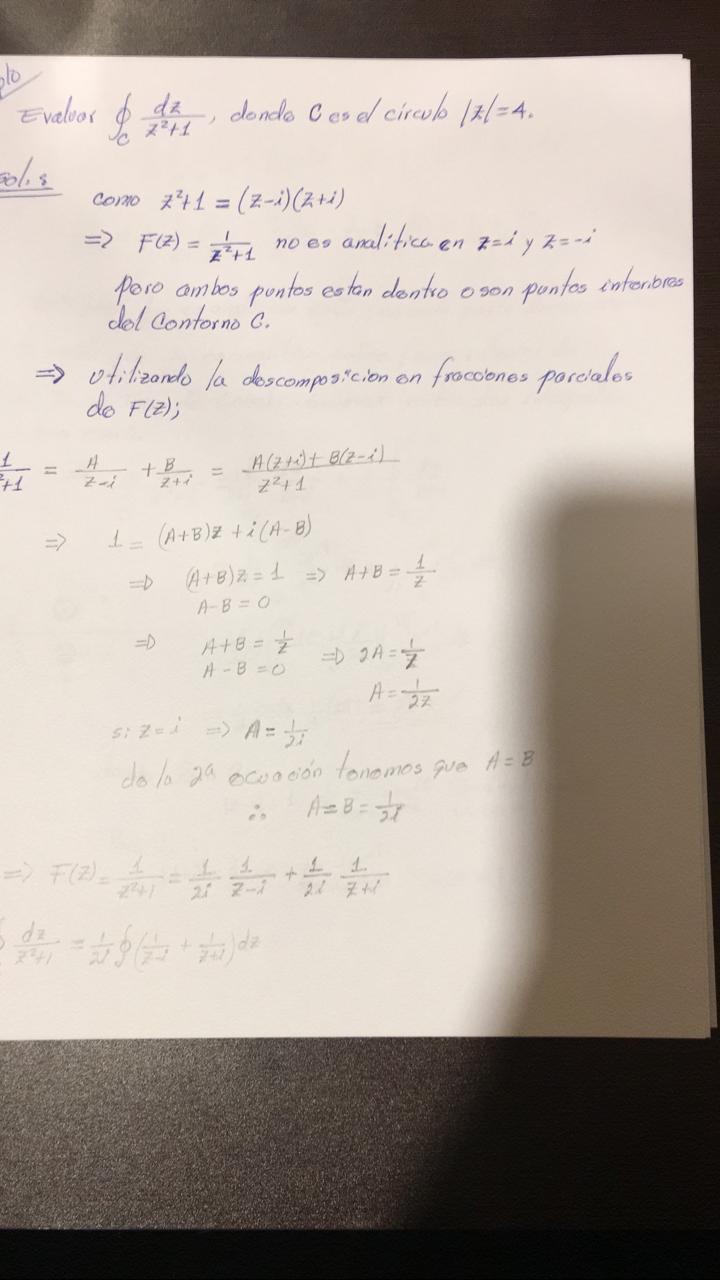 plo
Evaluar ∮_C dz/(z²+1), donde C es el círculo |z|=4.
sol.s
como z²+1 = (z-i)(z+i)
=> F(z) = 1/(z²+1) no es analítica en z=i y z=-i
pero ambos puntos estan dentro o son puntos interiores
del contorno C.
=> utilizando la descomposicion en fracciones parciales
de F(z);
1/(z²+1) = A/(z-i) + B/(z+i) = (A(z+i)+B(z-i))/(z²+1)
=> 1 = (A+B)z + i(A-B)
=> (A+B)z = 1 => A+B = 1/z
A-B = 0
=> A+B = 1/z => 2A = 1/z
A-B = 0
A = 1/2z
si z=i => A = 1/2i
de la 2ª ecuación tenemos que A=B
∴ A=B=1/2i
=> F(z) = 1/(z²+1) = 1/2i 1/(z-i) + 1/2i 1/(z+i)
∮ dz/(z²+1) = 1/2i ∮(1/(z-i) + 1/(z+i))dz